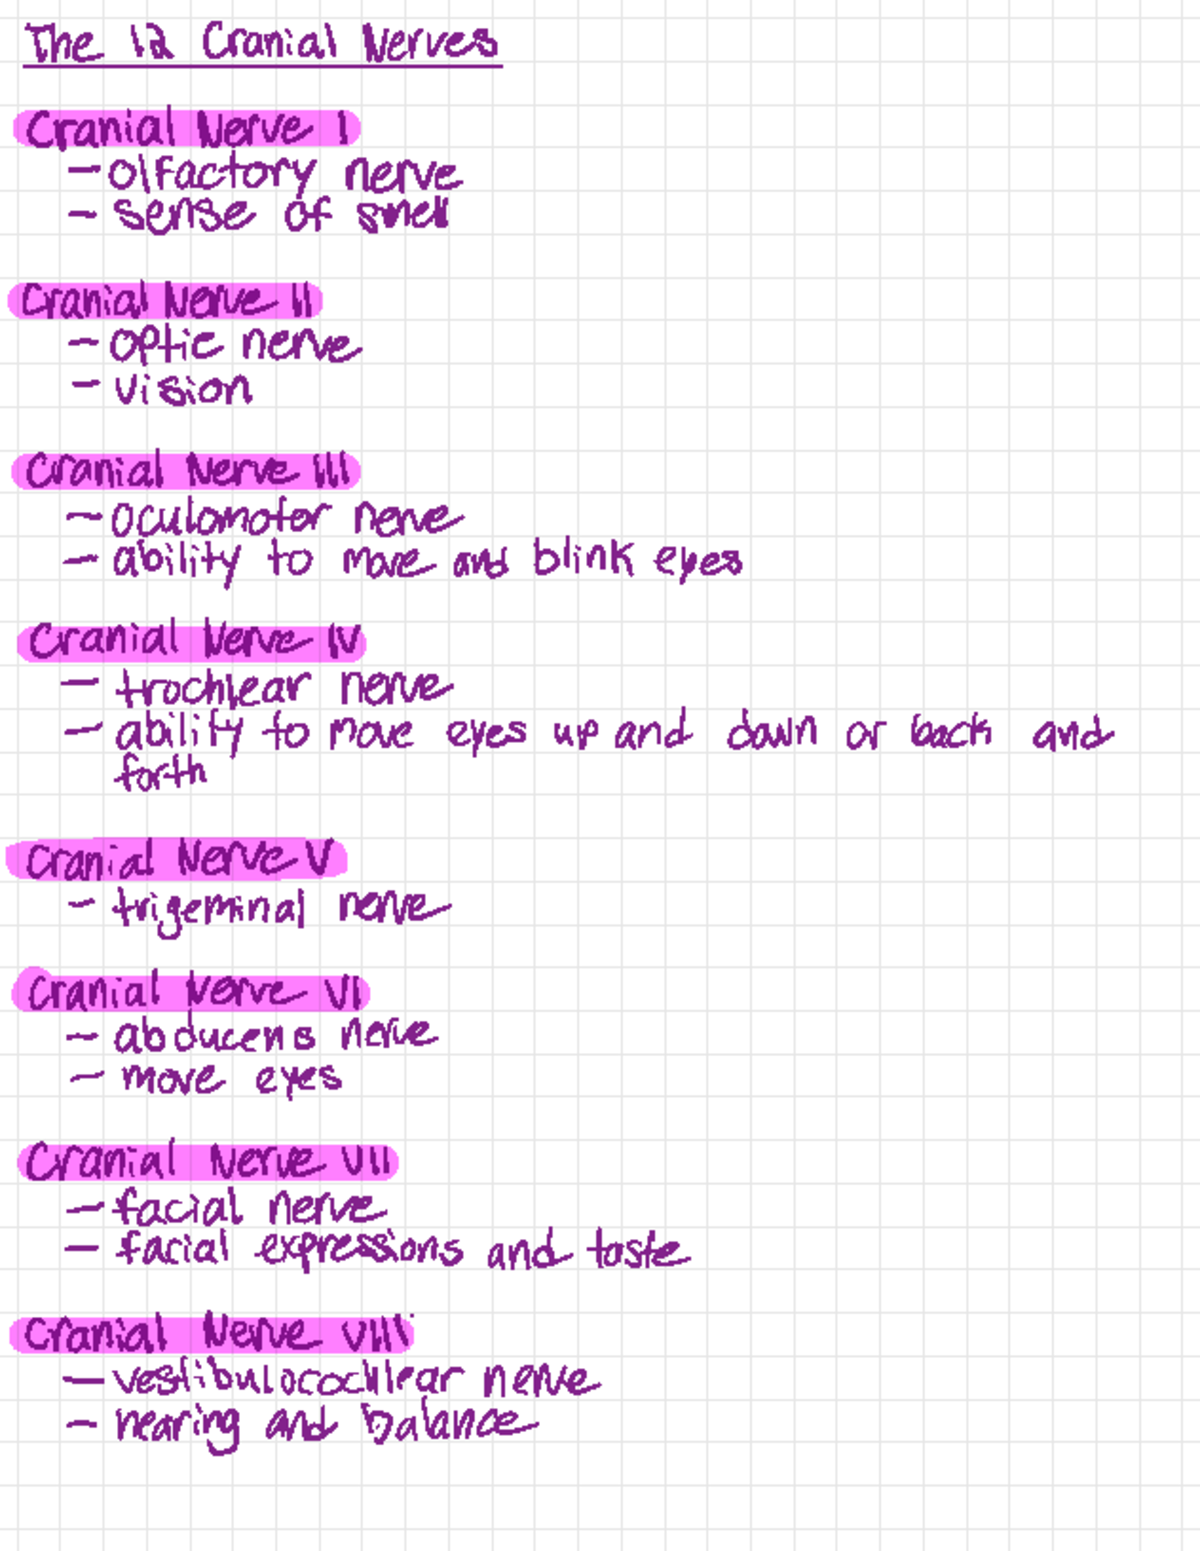 The 12 Cranial Nerves
Cranial Nerve I
- olfactory nerve
- sense of smell
Cranial Nerve II
- optic nerve
- vision
Cranial Nerve III
- oculomotor nerve
- ability to move and blink eyes
Cranial Nerve IV
- trochlear nerve
- ability to move eyes up and down or back and
forth
Cranial Nerve V
- trigeminal nerve
Cranial Nerve VI
- abducens nerve
- move eyes
Cranial Nerve VII
- facial nerve
- facial expressions and taste
Cranial Nerve VIII
- vestibulocochlear nerve
- hearing and balance